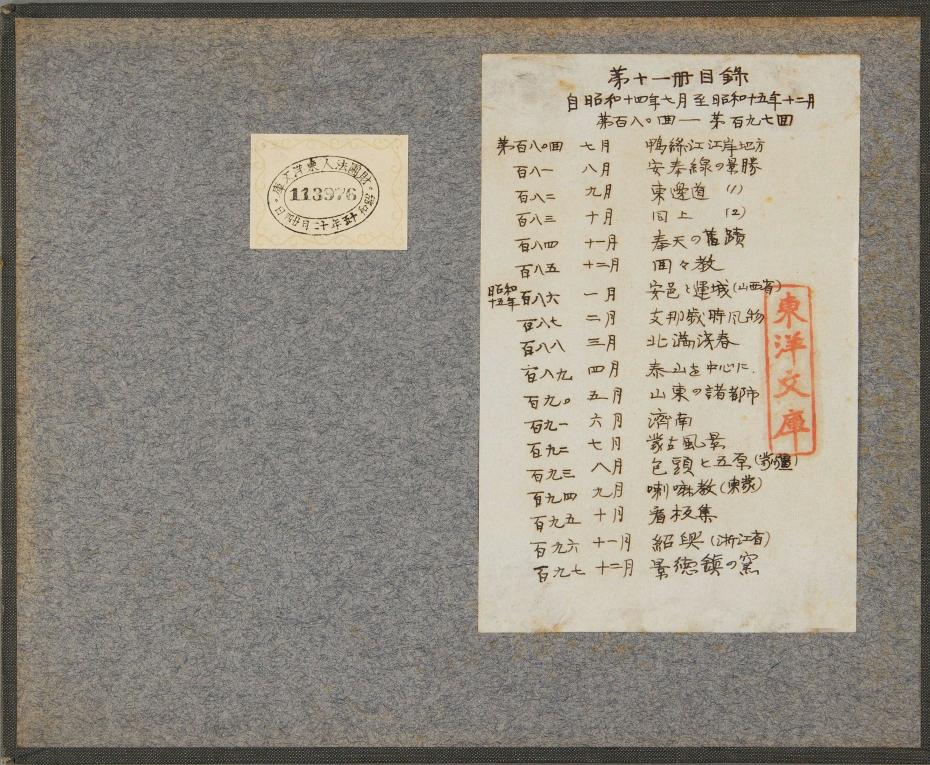 財團法人東洋文庫
113976
昭和十五年十二月廿日
第十一冊目錄
自昭和十四年七月至昭和十五年十二月
第百八〇回 — 第百九七回
第百八〇回 七月 鴨綠江江岸地方
百八一 八月 安奉線の景勝
百八二 九月 東邊道 (1)
百八三 十月 同上 (2)
百八四 十一月 奉天の舊蹟
百八五 十二月 回々教
昭和十五年 百八六 一月 安邑と運城(山西省)
百八七 二月 支那歲時風物
百八八 三月 北滿淺春
百八九 四月 泰山を中心に.
百九〇 五月 山東の諸都市
百九一 六月 濟南
百九二 七月 蒙古風景
百九三 八月 包頭と五原(蒙疆)
百九四 九月 喇嘛教(東蒙)
百九五 十月 看板集
百九六 十一月 紹興(浙江省)
百九七 十二月 景德鎮の窯
東洋文庫